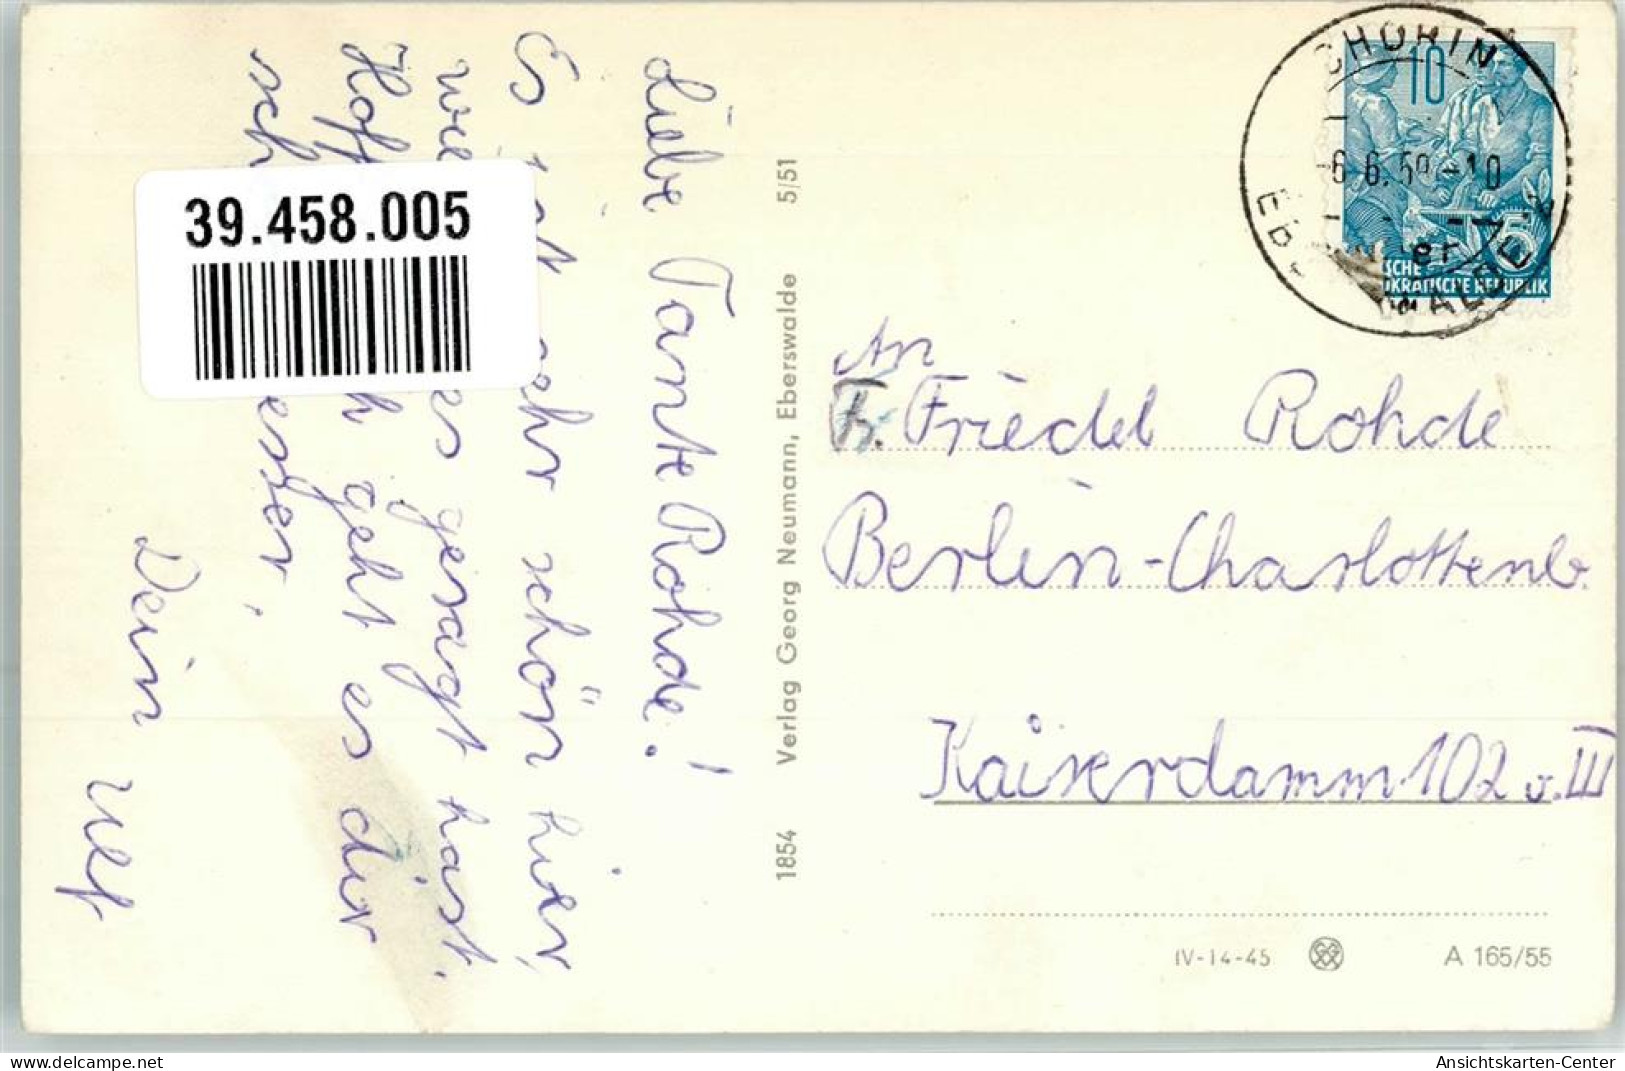 Liebe Tante Rohde!
Es ist sehr schön hier,
wie es gesagt hast.
Hoff ch geht es dir
sch esser,
Dein Ulf
39.458.005
1854 Verlag Georg Neumann, Eberswalde 5/51
CHORIN
-6.6.59.-10
10
5
SCHE
KRATISCHE REPUBLIK
An
Fr. Friedel Rohde
Berlin-Charlottenb.
Kaiserdamm 102 v. III
IV-14-45
A 165/55
delcampe.net
Ansichtskarten-Center